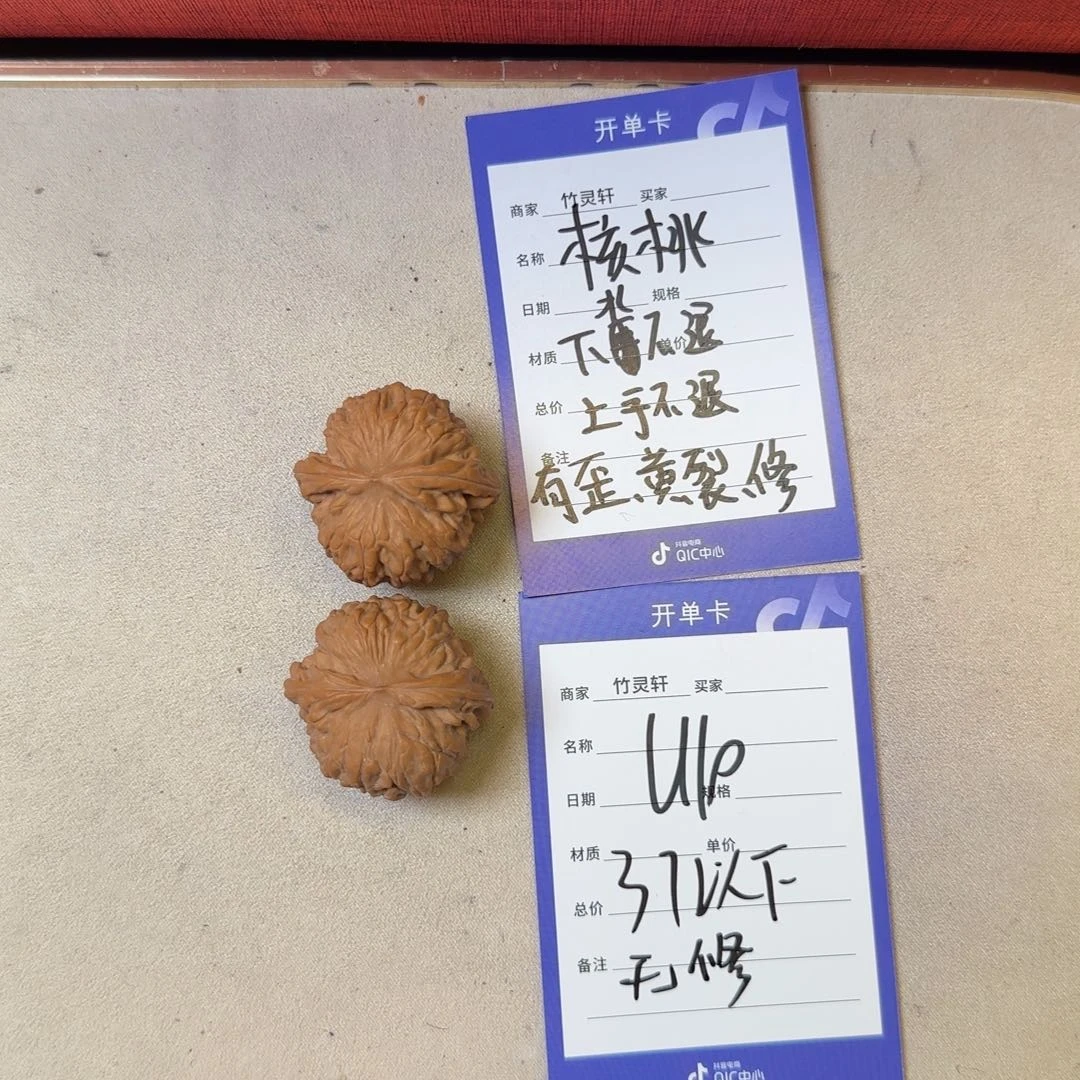 开单卡
商家 竹灵轩 买家
名称 核桃
日期 规格
材质 下 不退 单价
总价 上手不退
备注
有歪、黄裂、修
抖音电商
QIC中心
开单卡
商家 竹灵轩 买家
名称
UIP
日期 规格
材质 单价
37以下
总价
备注 无修
抖音电商
QIC中心